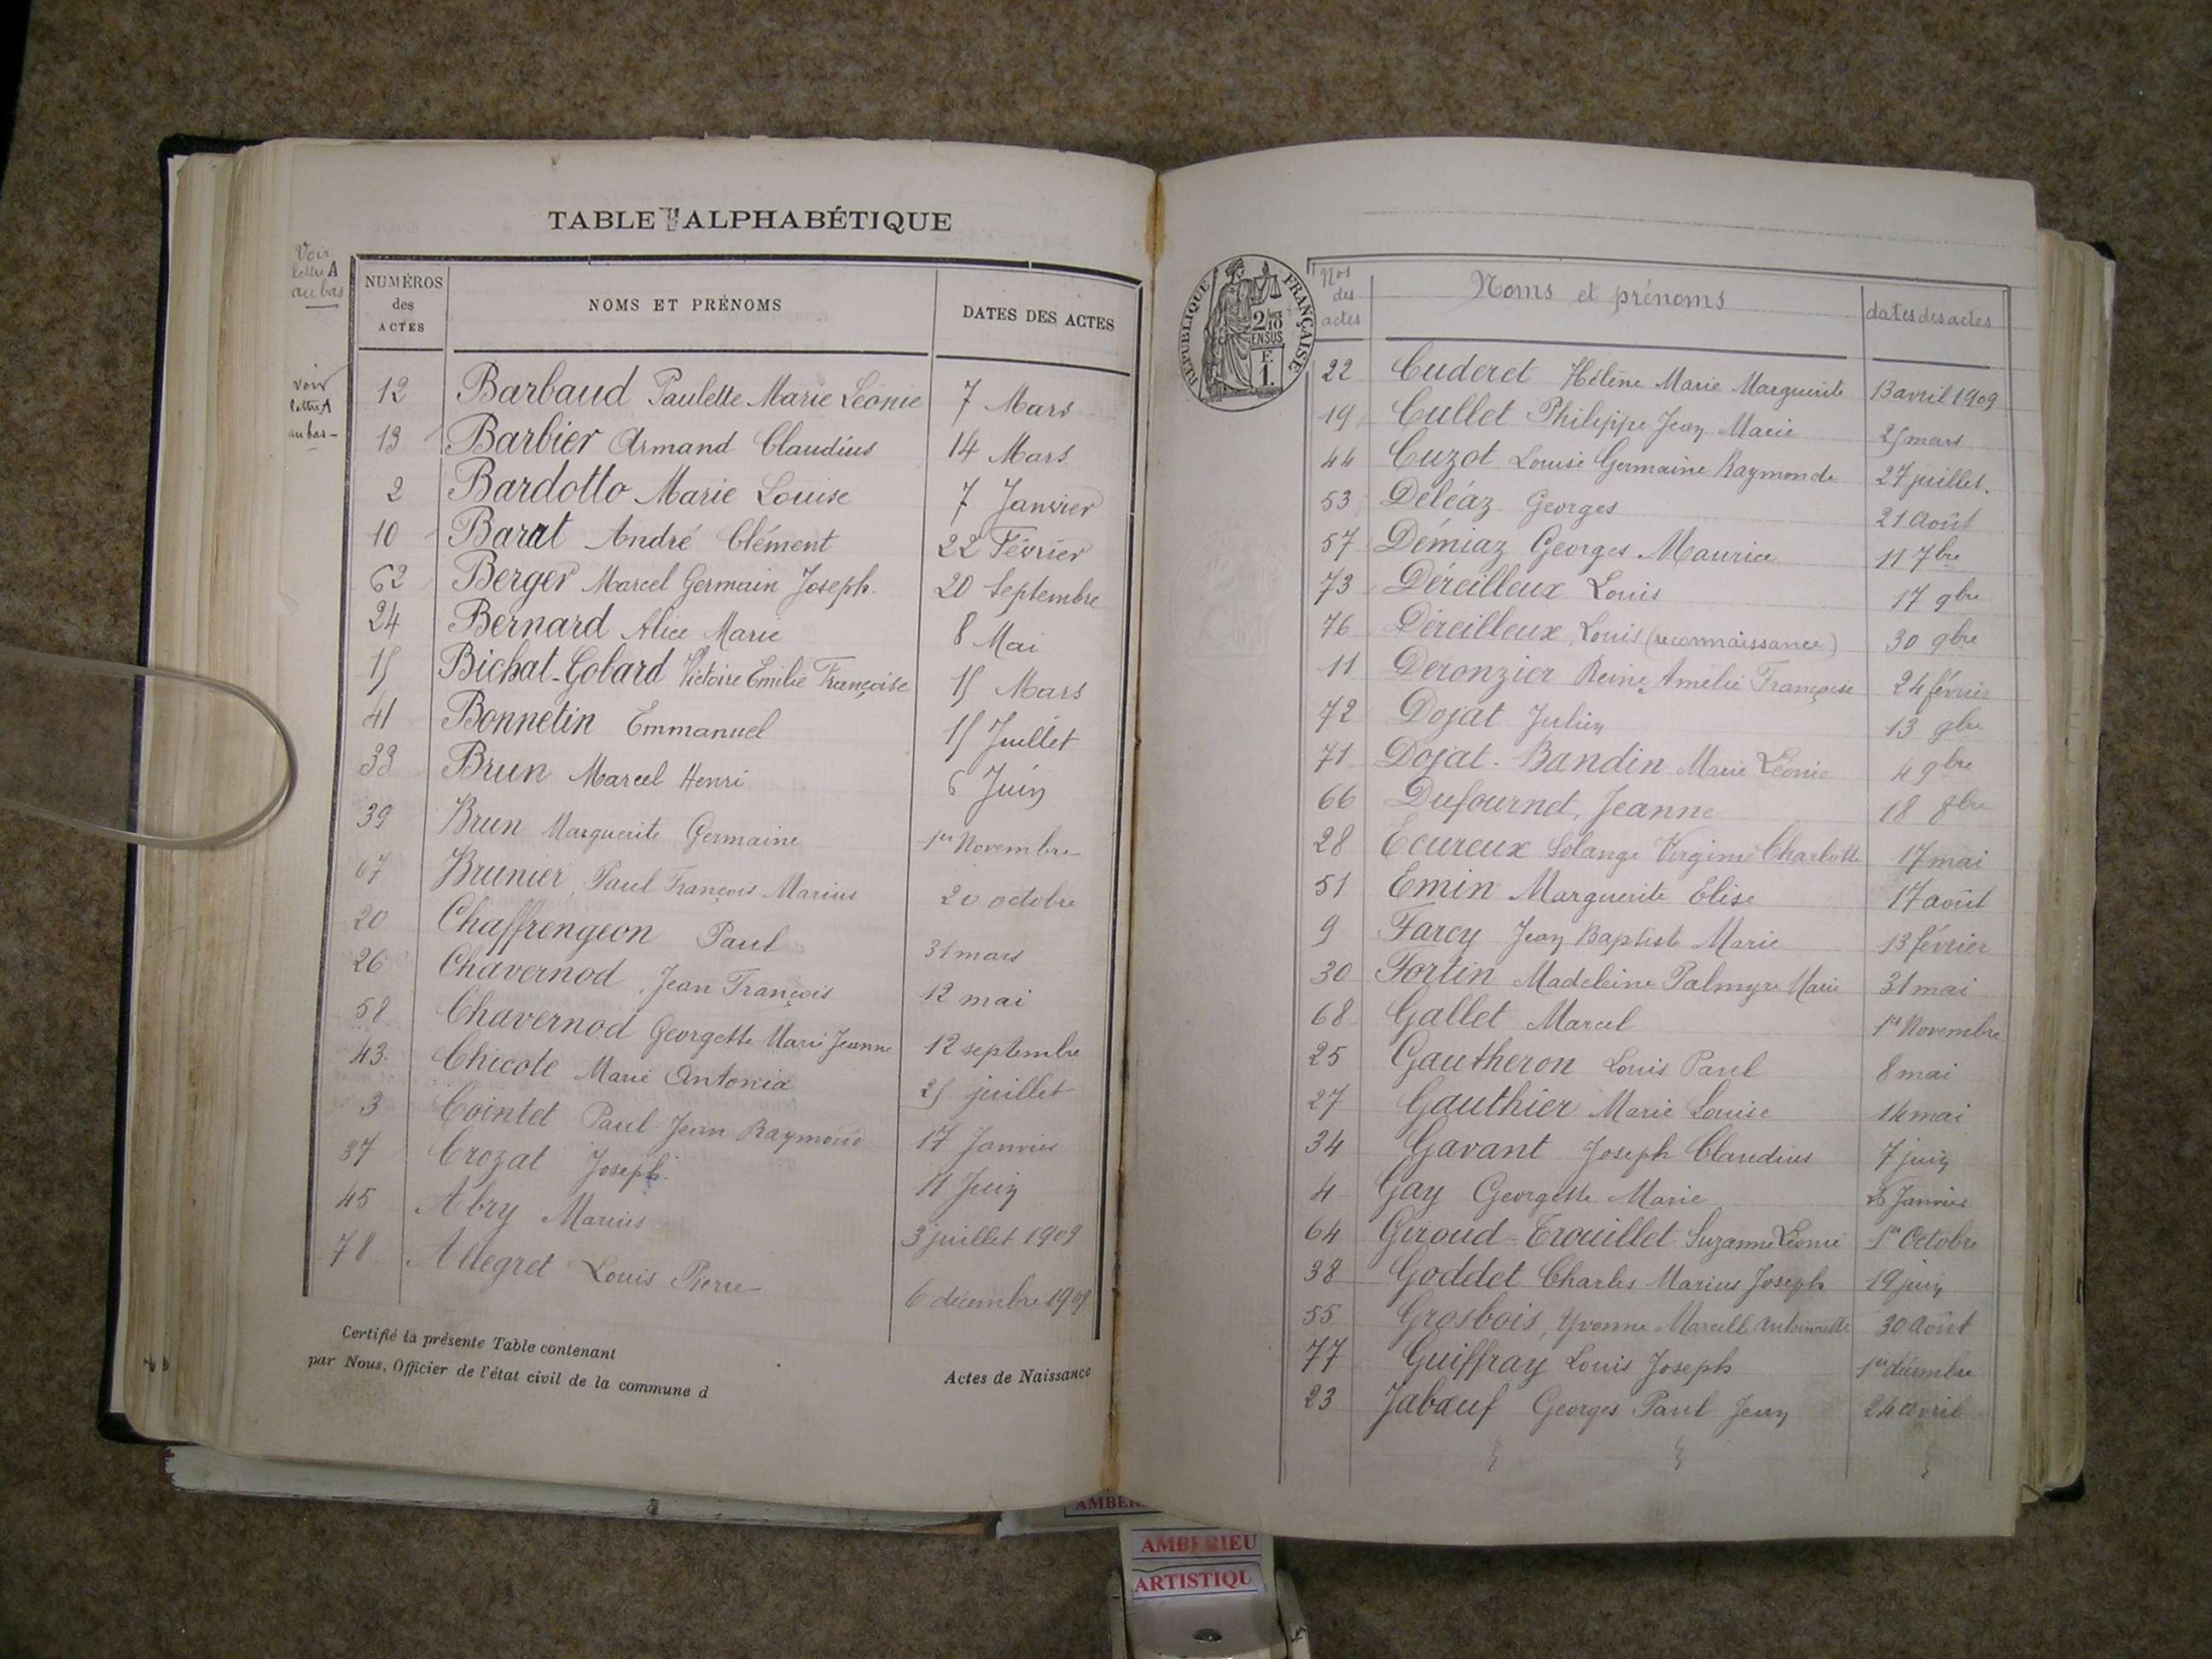 TABLE ALPHABÉTIQUE
Voir
lettre A
au bas
voir
lettre A
au bas -
NUMÉROS des ACTES NOMS ET PRÉNOMS DATES DES ACTES
12 Barbaud Paulette Marie Léonie 7 Mars
13 Barbier Armand Claudius 14 Mars
2 Bardotto Marie Louise 7 Janvier
10 Barat André Clément 22 Février
62 Berger Marcel Germain Joseph. 20 Septembre
24 Bernard Alice Marie 8 Mai
15 Bichat-Gobard Victoire Emilie Françoise 15 Mars
41 Bonnetin Emmanuel 15 Juillet
33 Brun Marcel Henri 6 Juin
39 Brun Marguerite Germaine 1er Novembre
67 Brunier Paul François Marius 20 octobre
20 Chaffrengeon Paul 31 mars
26 Chavernod Jean François 12 mai
58 Chavernod Georgette Marie Jeanne 12 septembre
43. Chicote Marie Antonia 25 juillet
3 Cointet Paul Jean Raymond 17 Janvier
37 Crozat Joseph. 11 Juin
45 Abry Marius 3 juillet 1909
78 Allegret Louis Pierre 6 décembre 1909
Certifié la présente Table contenant Actes de Naissance
par Nous, Officier de l'état civil de la commune d
RÉPUBLIQUE FRANÇAISE
2/10
EN SUS
F.
1.
Nos des actes Noms et prénoms dates des actes
22 Cuderet Hélène Marie Marguerite 13 avril 1909
19 Cullet Philippe Jean Marie 25 mars
44 Cuzot Louise Germaine Raymonde 27 juillet.
53 Déléaz Georges 21 Août
57 Démiaz Georges Maurice 11 7bre
73 Déreilleux Louis 17 9bre
76 Déreilleux Louis (reconnaissance) 30 9bre
11 Deronzier Reine Amélie Françoise 24 février
72 Dojat Julien 13 9bre
71 Dojat-Bandin Marie Léonie 4 9bre
66 Dufournet, Jeanne 18 8bre
28 Ecureux Solange Virginie Charlotte 17 mai
51 Emin Marguerite Elise 17 août
9 Farcy Jean Baptiste Marie 13 février
30 Fortin Madeleine Palmyre Marie 31 mai
68 Gallet Marcel 1er Novembre
25 Gautheron Louis Paul 8 mai
27 Gauthier Marie Louise 14 mai
34 Gavant Joseph Claudius 7 juin
4 Gay Georgette Marie Janvier
64 Giroud-Trouillet Suzanne Léonie 1er Octobre
38 Goddet Charles Marius Joseph 19 juin
55 Grosbois, Yvonne Marcelle Antoinette 30 Août
77 Guiffray Louis Joseph 1er décembre
23 Jabœuf Georges Paul Jean 24 avril
AMBERIEU
ARTISTIQU